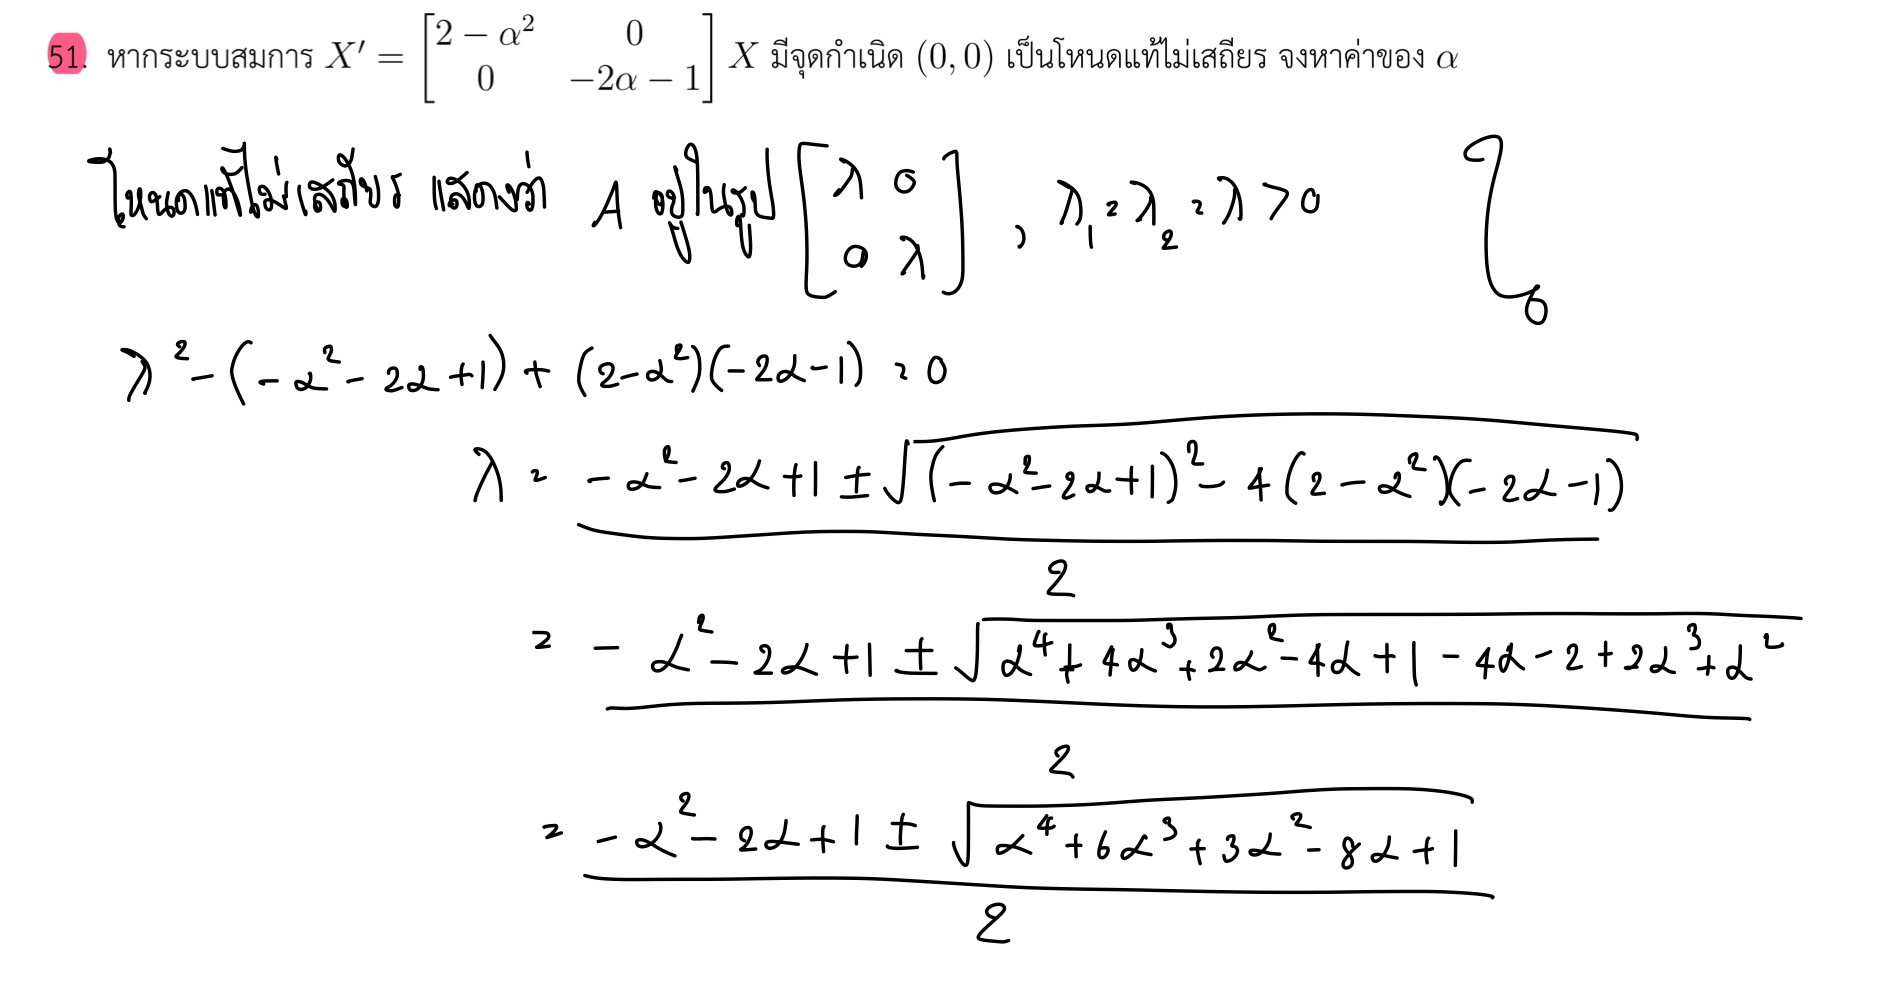 51. หากระบบสมการ X′ = [2 − α² 0; 0 −2α − 1] X มีจุดกำเนิด (0, 0) เป็นโหนดแท้ไม่เสถียร จงหาค่าของ α
โหนดแท้ไม่เสถียร แสดงว่า A อยู่ในรูป [λ 0; 0 λ] , λ₁ = λ₂ = λ > 0
λ² − (−α² − 2α + 1) + (2 − α²)(−2α − 1) = 0
λ = (−α² − 2α + 1 ± √((−α² − 2α + 1)² − 4(2 − α²)(−2α − 1))) / 2
= (−α² − 2α + 1 ± √(α⁴ + 4α³ + 2α² − 4α + 1 − 4α − 2 + 2α³ + α²)) / 2
= (−α² − 2α + 1 ± √(α⁴ + 6α³ + 3α² − 8α + 1)) / 2